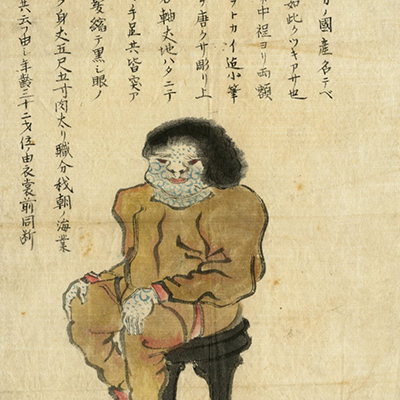 ノ國産名テベ
如此クツキアサ也
中程ヨリ両額
ヲトカイ迄小筆
唐クサ彫リ上
軸丈地ハタニテ
手足共皆突ア
髪縮テ黒ミ眼ノ
身丈五尺五寸肉太リ職分我朝ノ海業
共云フ由シ年齢三十二才位ノ由衣裳前同断